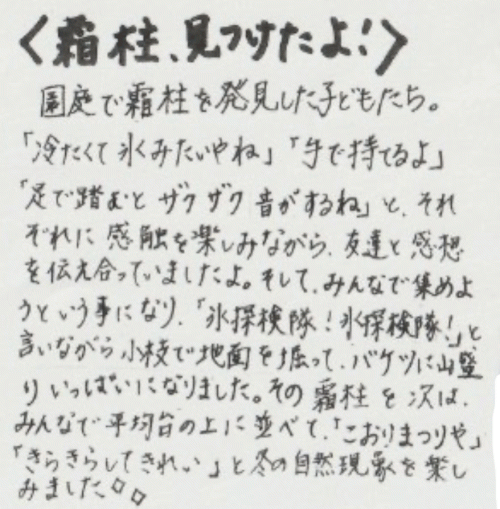 〈霜柱、見つけたよ!〉
園庭で霜柱を発見した子どもたち。
「冷たくて氷みたいやね」「手で持てるよ」
「足で踏むと ザクザク 音がするね」と、それ
ぞれに 感触を楽しみながら、友達と感想
を伝え合っていましたよ。そして、みんなで集めよ
うという事になり、「氷探検隊!氷探検隊!」と
言いながら 小枝で地面を掘って、バケツに山盛
り いっぱいになりました。その 霜柱を 次は、
みんなで 平均台の上に 並べて、「こおりまつりや」
「きらきらしてきれい」と冬の自然現象を楽し
みました。